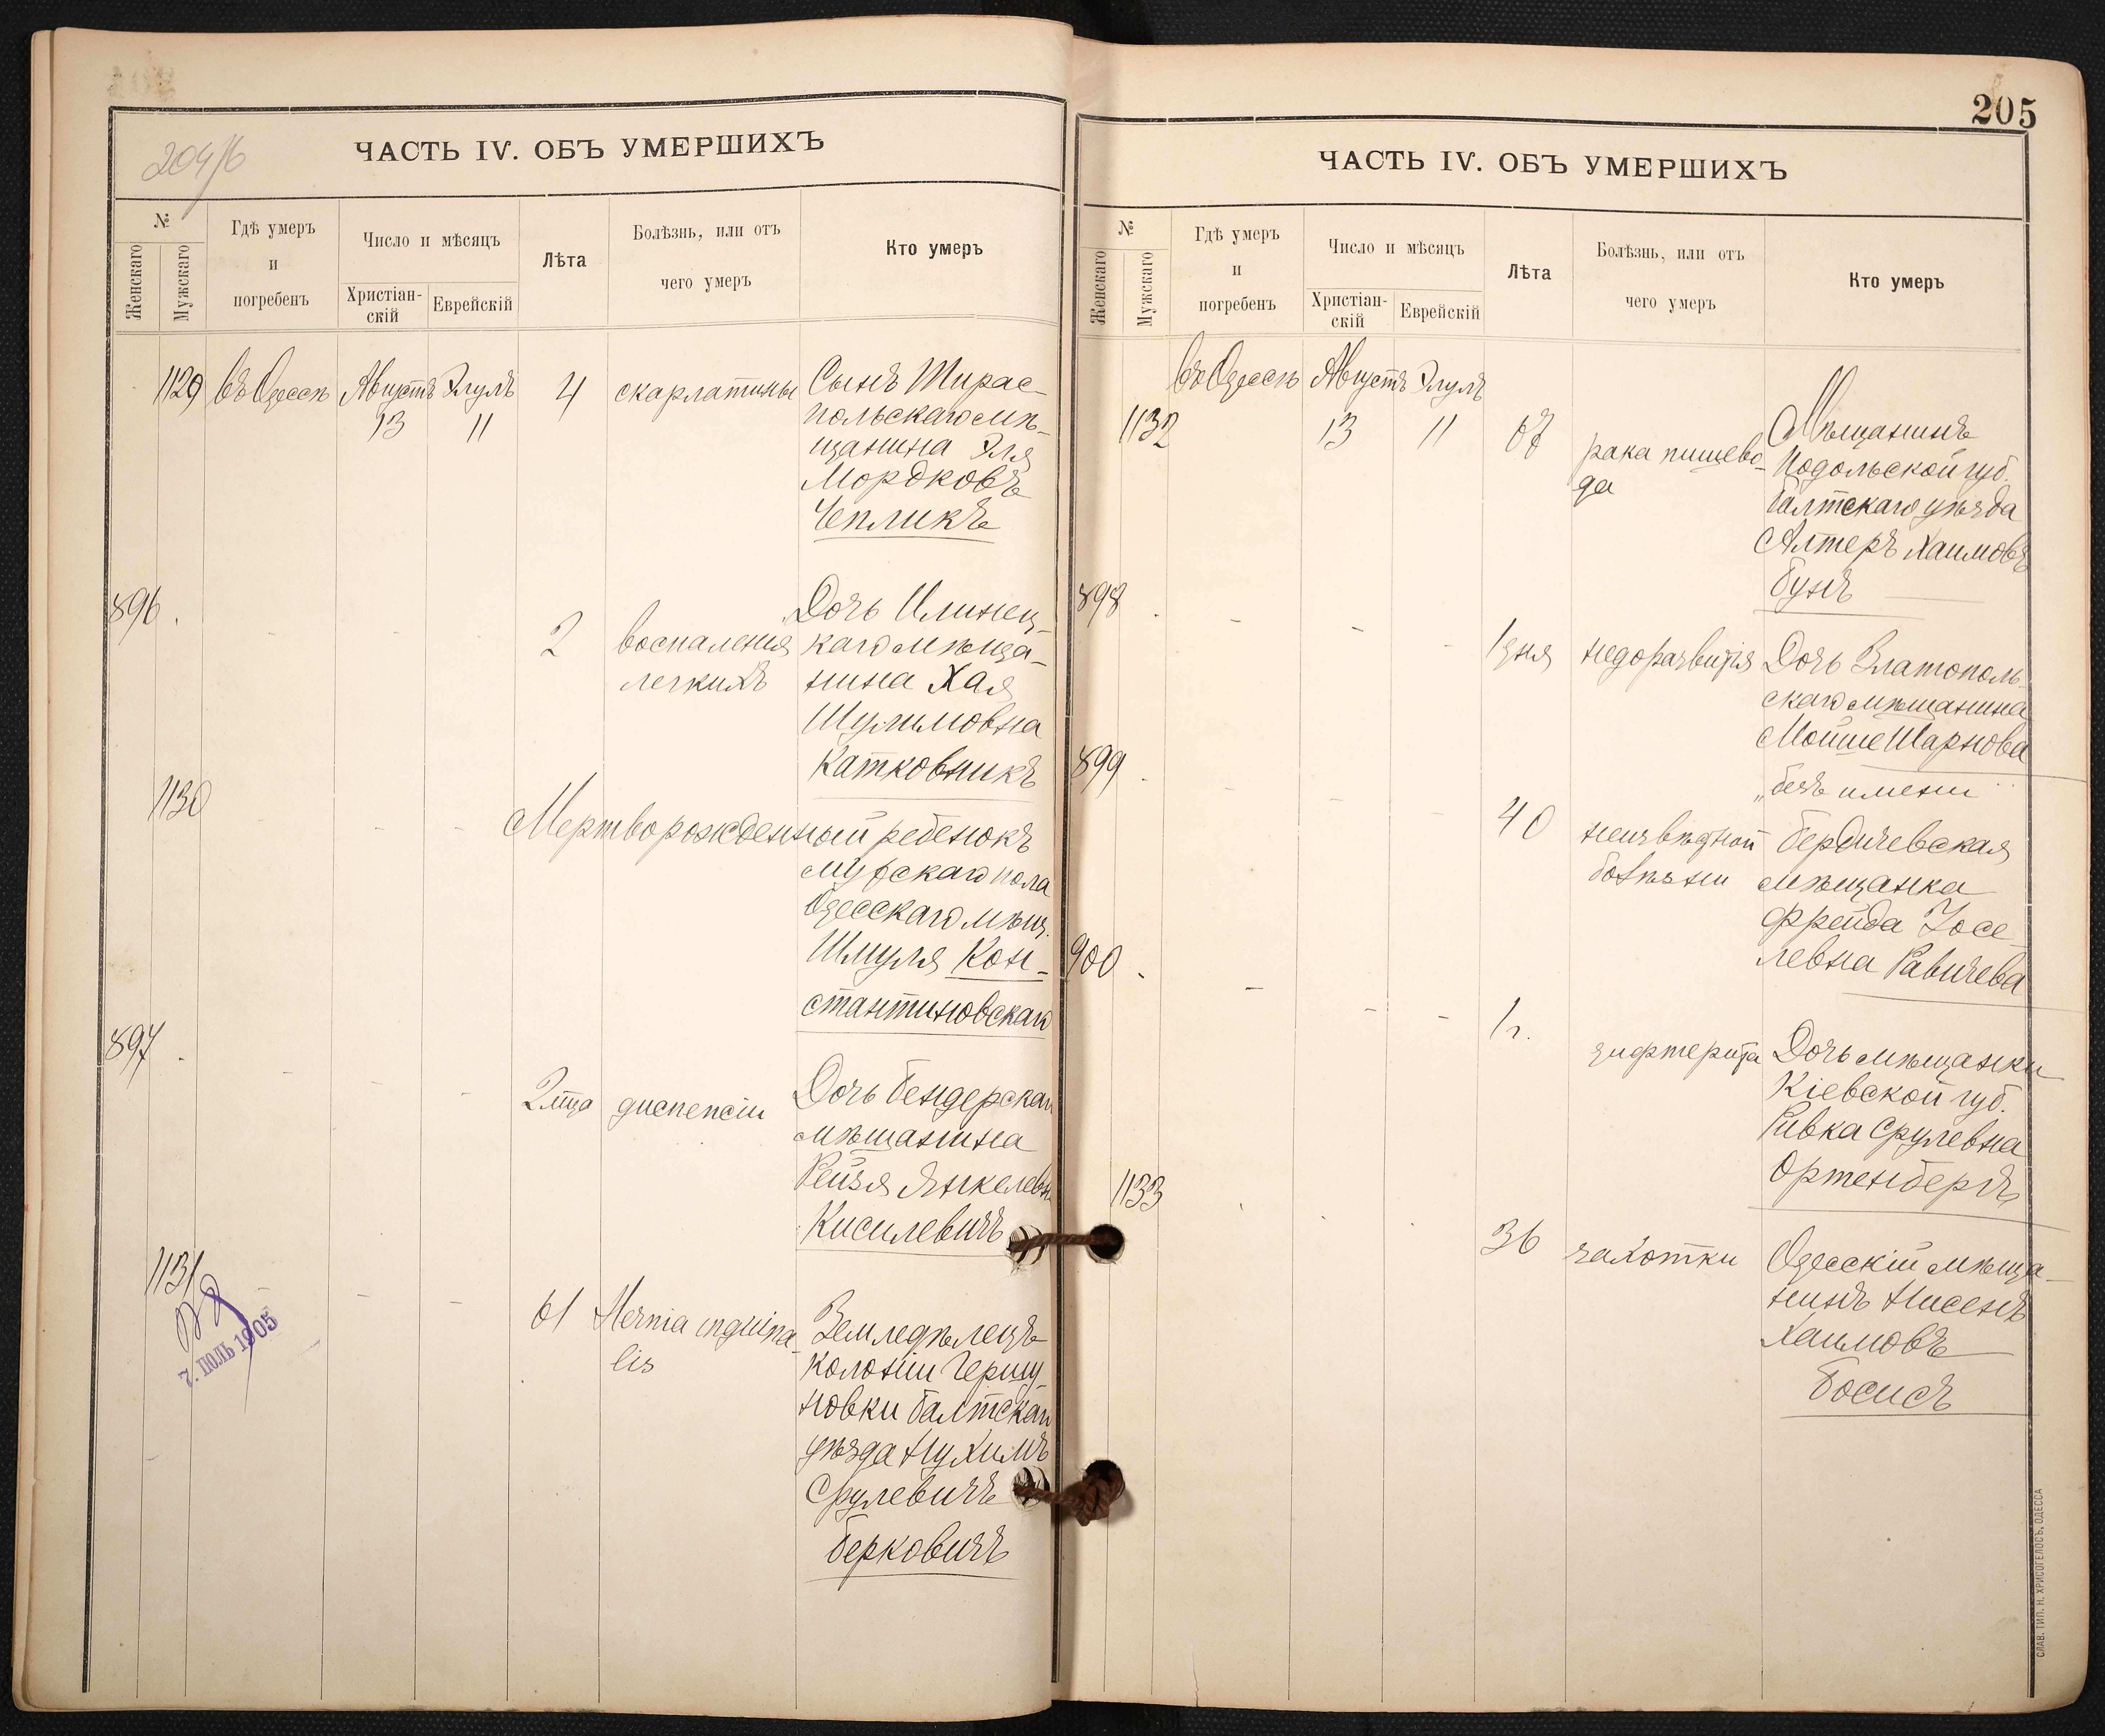 204/б
ЧАСТЬ IV. ОБЪ УМЕРШИХЪ
№
Женскаго
Мужскаго
Гдѣ умеръ
и
погребенъ
Число и мѣсяцъ
Христіан-
скій
Еврейскій
Лѣта
Болѣзнь, или отъ
чего умеръ
Кто умеръ
1129 въ Одессѣ Августъ Элулъ 4 скарлатины Сынъ Тирас-
13 11 польскаго мѣ-
щанина Эля
Мордковъ
Чепликъ
896. 2 воспаленія Дочь Илинец-
легкихъ каго мѣща-
нина Хая
Шулимовна
Катковникъ
1130 Мертворожденный ребенокъ
мужскаго пола
Одесскаго мѣщ.
Шмуля Кон-
стантиновскаго
897. 2 мца диспепсіи Дочь Бендерскаго
мѣщанина
Рейзя Янкелевна
Кисилевичъ
1131 61 Hernia inguina- Земледѣлецъ
lis колоніи Гершу-
новки Балтскаго
уѣзда Нухимъ
Срулевичъ
Берковичъ
7. ІЮЛЬ 1905
205
ЧАСТЬ IV. ОБЪ УМЕРШИХЪ
№
Женскаго
Мужскаго
Гдѣ умеръ
и
погребенъ
Число и мѣсяцъ
Христіан-
скій
Еврейскій
Лѣта
Болѣзнь, или отъ
чего умеръ
Кто умеръ
въ Одессѣ Августъ Элулъ
1132 13 11 рака пищево- Мѣщанинъ
да Подольской губ.
Балтскаго уѣзда
Алтеръ Хаимовъ
Бунъ
898. 1 дня недоразвитія Дочь Златополь-
скаго мѣщанина
Мойше Шарнова
„безъ имени"
899. 40 неизвѣстной Бердичевская
болѣзни мѣщанка
Фрейда Іосе-
левна Равичева
900. 1 г. дифтерита Дочь мѣщанки
Кіевской губ.
Ривка Срулевна
Ортенбергъ
1133 36 чахотки Одесскій мѣща-
нинъ Нисенъ
Хаимовъ
Босисъ
СЛАВ. ТИП. Н. ХРИСОГЕЛОСЪ, ОДЕССА